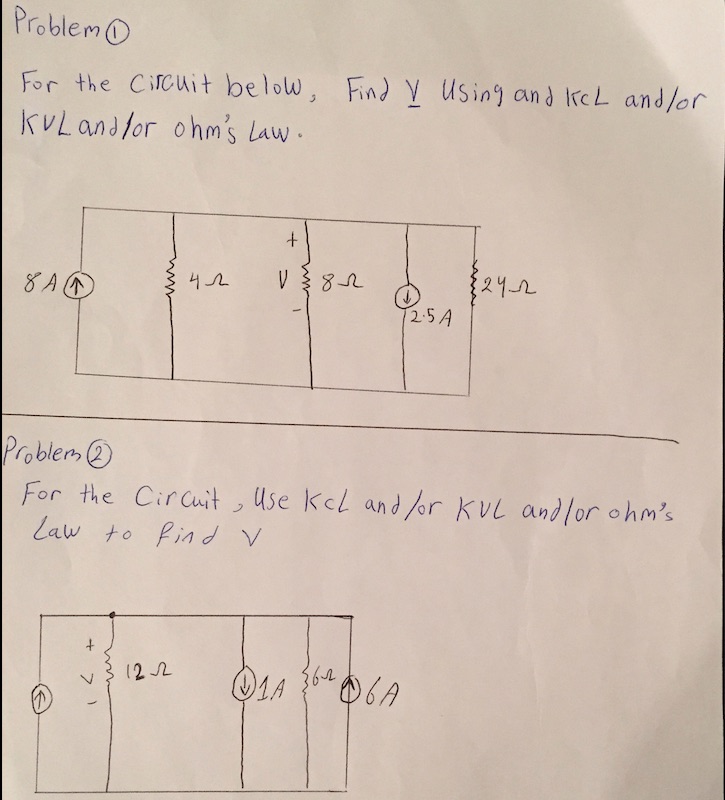 Problem ①
For the Circuit below, Find V Using and KCL and/or
KVL and/or ohm's Law.
8 A
4 Ω
+
V
-
8 Ω
2.5 A
24 Ω
Problem ②
For the Circuit, Use KCL and/or KVL and/or ohm's
Law to find V
+
V
-
12 Ω
1 A
6 Ω
6 A